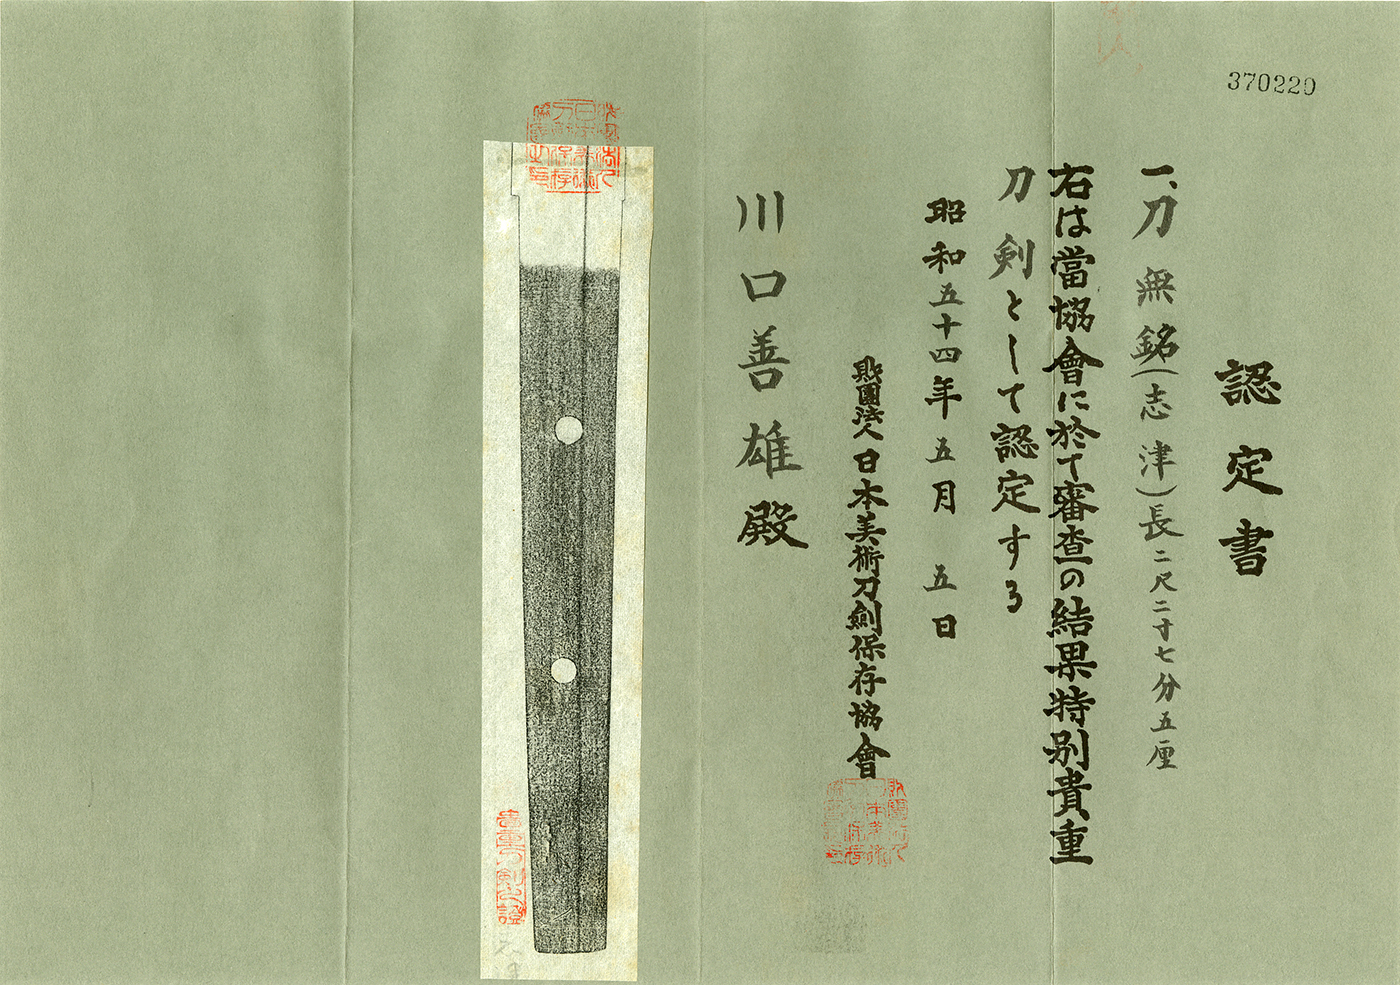 370220
認定書
一、刀 無銘(志津)長二尺二寸七分五厘
右は當協會に於て審査の結果特別貴重
刀剣として認定する
昭和五十四年五月 五日
財團法人日本美術刀劍保存協會
川口善雄殿
貴重刀剣之證